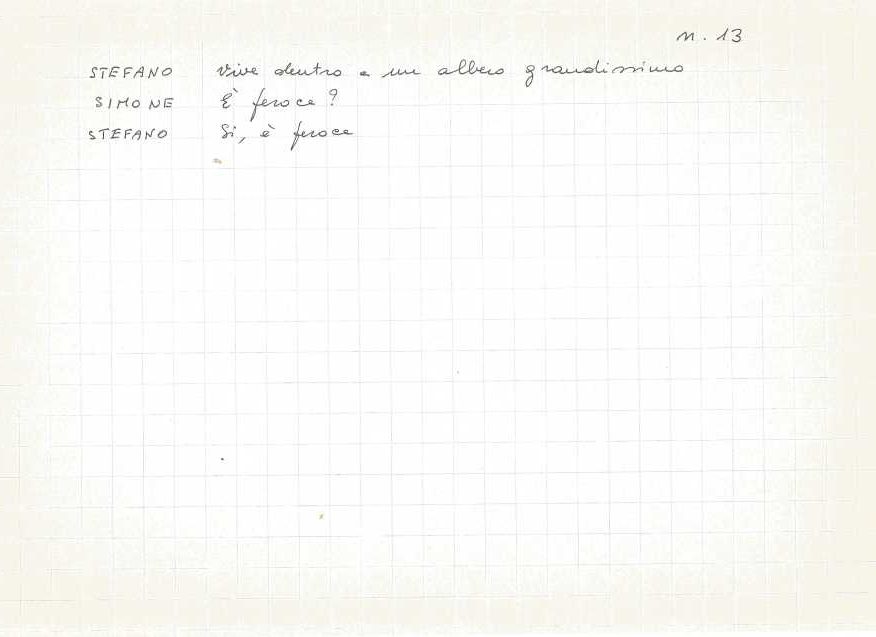 n. 13
STEFANO vive dentro a un albero grandissimo
SIMONE È feroce?
STEFANO Si, è feroce